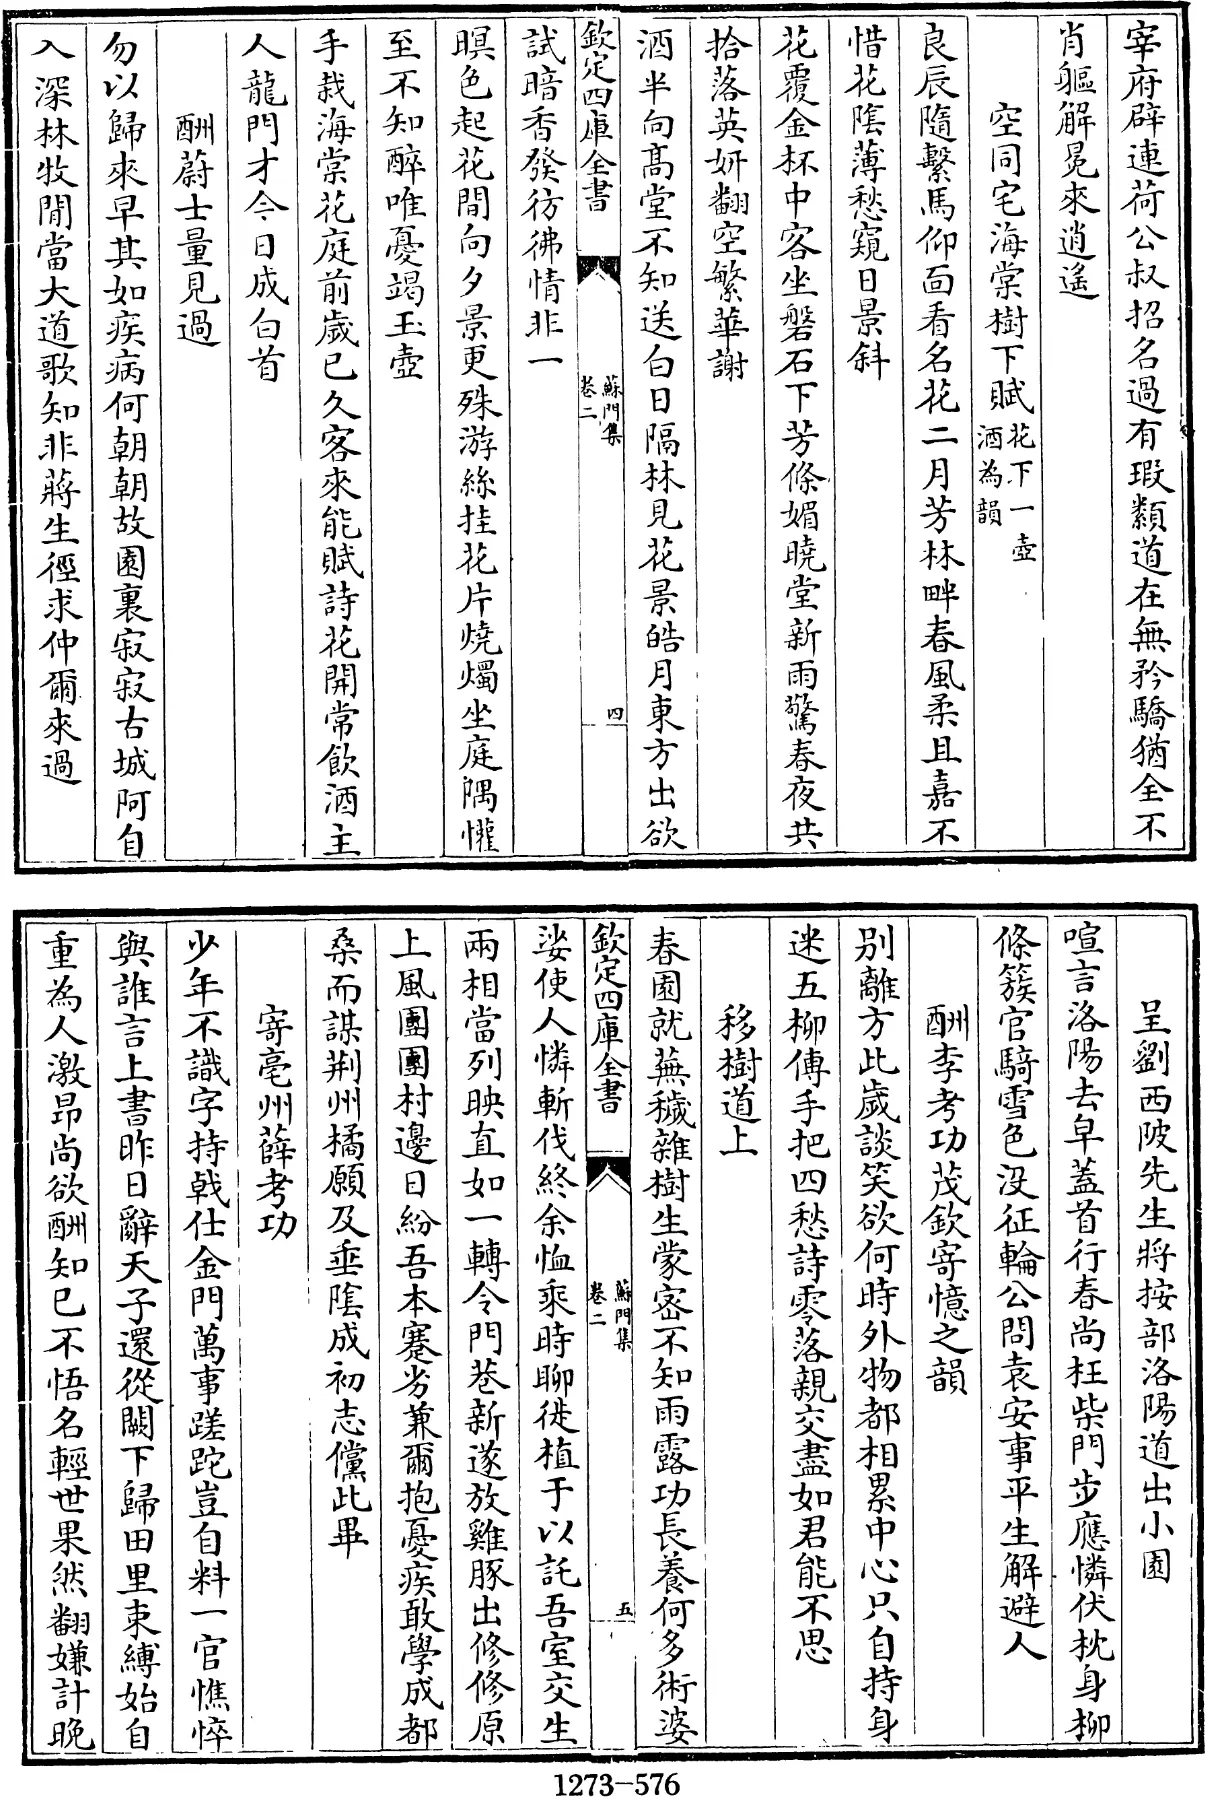 宰府辟連荷公叔招名過有瑕纇道在無矜驕猶全不
肖軀解冕來逍遙
空同宅海棠樹下賦花下一壺酒為韻
良辰隨繫馬仰面看名花二月芳林畔春風柔且嘉不
惜花陰薄愁窺日景斜
花覆金杯中客坐磐石下芳條媚曉堂新雨驚春夜共
拾落英妍翻空繁華謝
酒半向髙堂不知送白日隔林見花景皓月東方出欲
欽定四庫全書
蘇門集
卷二
四
試暗香發彷彿情非一
暝色起花間向夕景更殊游絲挂花片燒燭坐庭隅懽
至不知醉唯憂竭玉壺
手栽海棠花庭前歲已久客來能賦詩花開常飲酒主
人龍門才今日成白首
酬蔚士量見過
勿以歸來早其如疾病何朝朝故園裏寂寂古城阿自
入深林牧閒當大道歌知非蔣生徑求仲爾來過
呈劉西陂先生將按部洛陽道出小園
喧言洛陽去皁蓋首行春尚枉柴門步應憐伏枕身柳
條簇官騎雪色沒征輪公問袁安事平生解避人
酬李考功茂欽寄憶之韻
別離方此歲談笑欲何時外物都相累中心只自持身
迷五柳傳手把四愁詩零落親交盡如君能不思
移樹道上
春園就蕪穢雜樹生蒙密不知雨露功長養何多術婆
欽定四庫全書
蘇門集
卷二
五
娑使人憐斬伐終余恤乘時聊徙植于以託吾室交生
兩相當列映直如一轉令門巷新遂放雞豚出修修原
上風團團村邊日紛吾本蹇劣兼爾抱憂疾敢學成都
桑而謀荆州橘願及垂陰成初志儻此畢
寄亳州薛考功
少年不識字持戟仕金門萬事蹉跎豈自料一官憔悴
與誰言上書昨日辭天子還從闕下歸田里束縛始自
重為人激昂尚欲酬知已不悟名輕世果然翻嫌計晚
1273-576